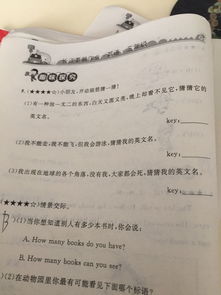 9.(★★★★☆)小朋友,开动脑筋猜一猜!
(1)有一种放一文二的东西,白天又蓝又亮,晚上却看不见它,猜猜它的
英文名。
key:
(2)我不能走,我不能飞,但我会游泳,猜猜我的英文名。
key:
(3)我出现在地球的各个角落,没有我,大家都会死,猜猜我的英文名。
key:
(★★★★☆)情景交际。
B)(1)当你想知道别人有多少本书时,你会说:
A. How many books do you have?
B. How many books can you see?
)(2)在动物园里你最有可能看见下面哪个标语?